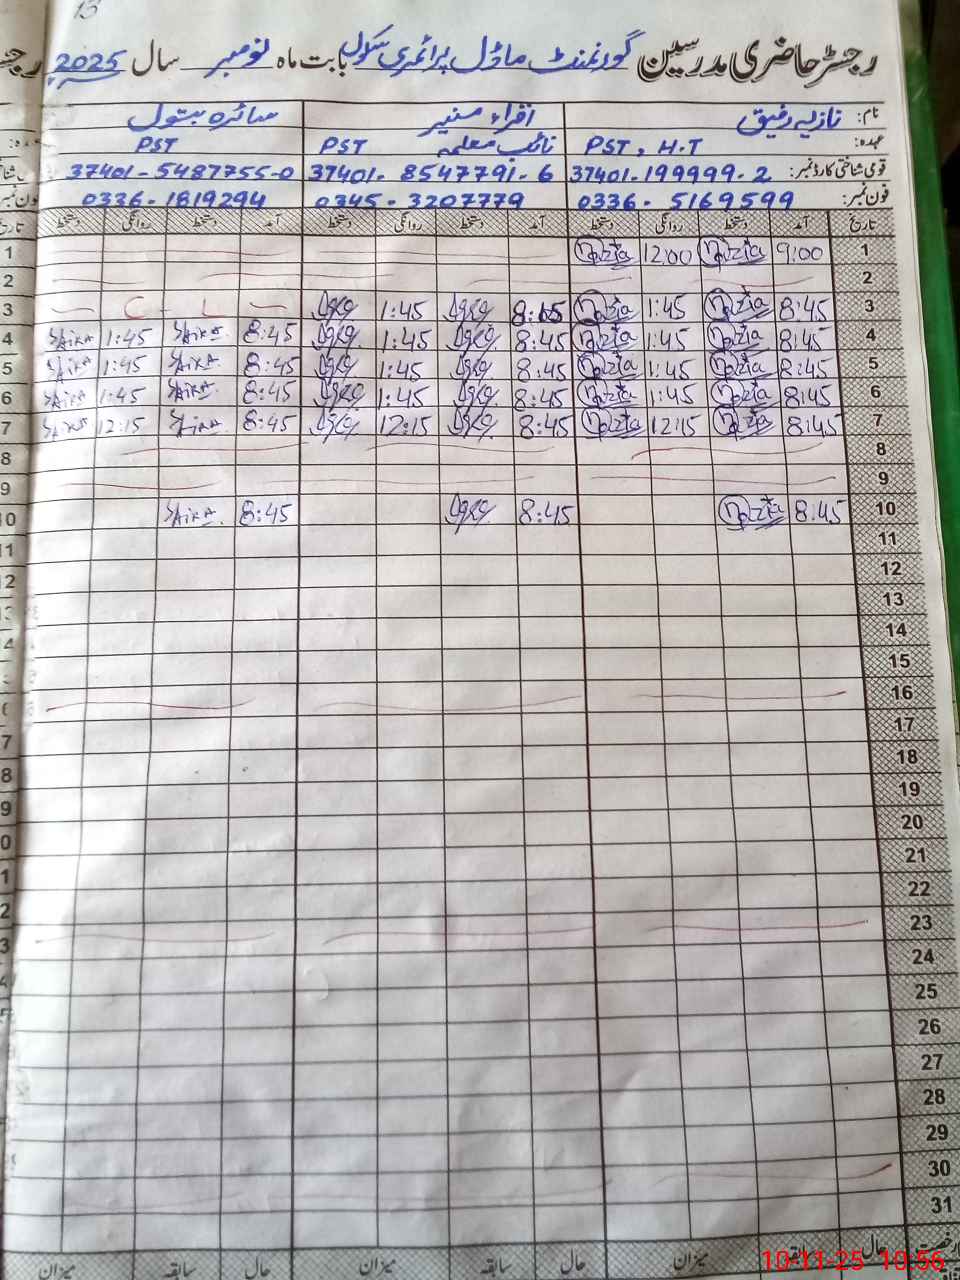 13
رجسٹر حاضری مدرسین گورنمنٹ ماڈل پرائمری سکول بابت ماہ نومبر سال 2025
نام: نازیہ رفیق اقراء منیر سائرہ بتول
عہدہ: PST, H.T نائب معلمہ PST PST
قومی شناختی کارڈ نمبر: 37401-199999-2 37401-8547791-6 37401-5487755-0
فون نمبر: 0336-5169599 0345-3207779 0336-1819294
تاریخ آمد دستخط روانگی دستخط آمد دستخط روانگی دستخط آمد دستخط روانگی دستخط تاریخ
1 9:00 Nazia 12:00 Nazia 1
2 2
3 8:45 Nazia 1:45 Nazia 8:45 1:45 L C 3
4 8:45 Nazia 1:45 Nazia 8:45 1:45 8:45 SAiRA 1:45 SAiRA 4
5 8:45 Nazia 1:45 Nazia 8:45 1:45 8:45 SAiRA 1:45 SAiRA 5
6 8:45 Nazia 1:45 Nazia 8:45 1:45 8:45 SAiRA 1:45 SAiRA 6
7 8:45 Nazia 12:15 Nazia 8:45 12:15 8:45 SAiRA 12:15 SAiRA 7
8 8
9 9
10 8:45 Nazia 8:45 8:45 SAiRA 10
11 11
12
13
14
15
16
17
18
19
20
21
22
23
24
25
26
27
28
29
30
31
حال سابقہ میزان حال سابقہ میزان حال سابقہ میزان
10-11-25 10:56